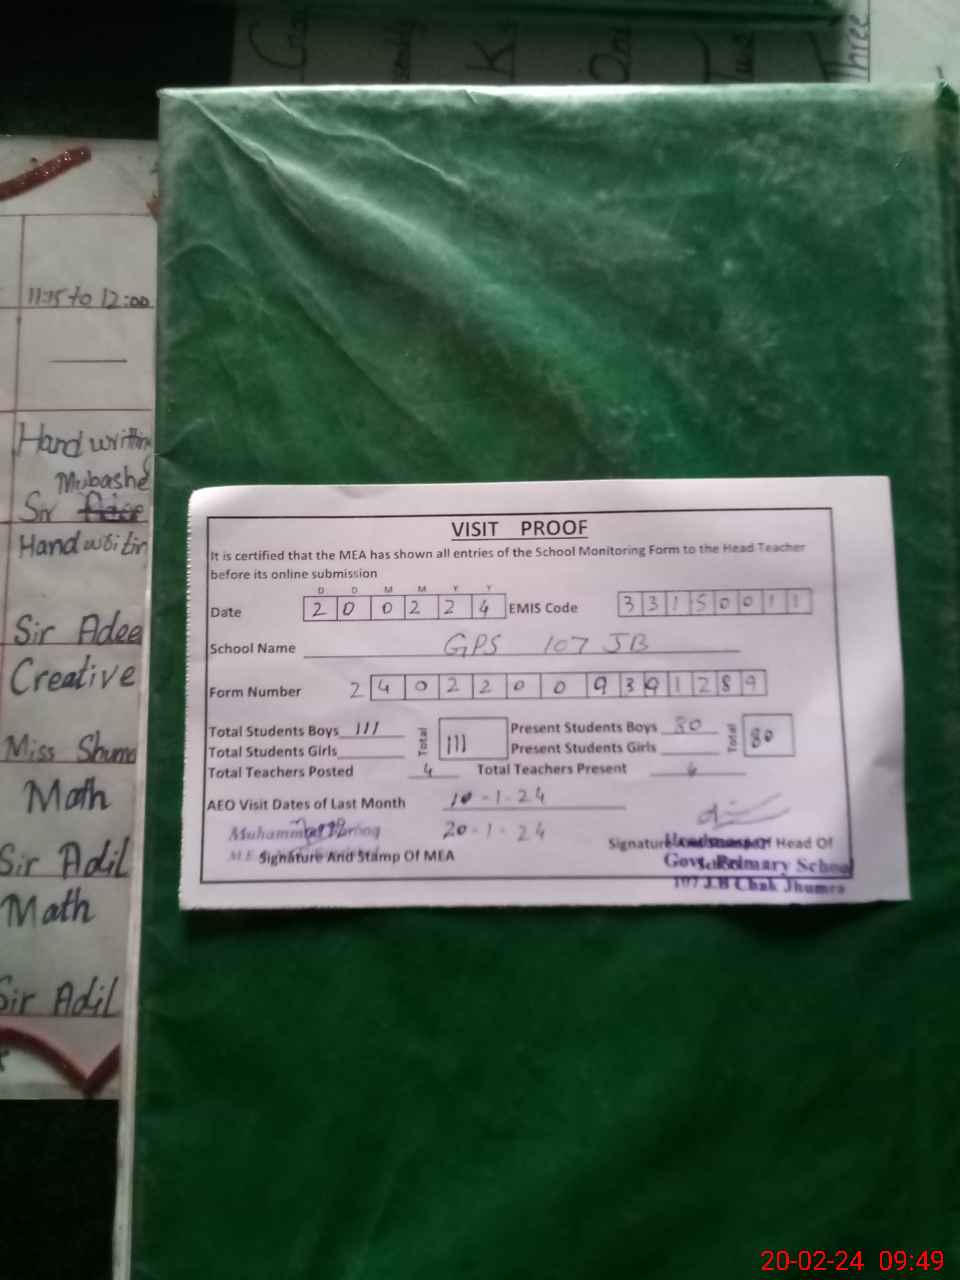 Three
11:15 to 12:00
Hand writtin
Mubashe
Sir
Hand writin
Sir Adee
Creative
Miss Shum
Math
Sir Adil
Math
Sir Adil
VISIT PROOF
It is certified that the MEA has shown all entries of the School Monitoring Form to the Head Teacher
before its online submission
D D M M Y Y
Date 2 0 0 2 2 4 EMIS Code 3 3 1 5 0 0 1 1
School Name GPS 107 JB
Form Number 2 4 0 2 2 0 0 9 3 9 1 2 8 9
Total Students Boys 111 Total 111 Present Students Boys 80 Total 80
Total Students Girls Present Students Girls
Total Teachers Posted 4 Total Teachers Present 4
AEO Visit Dates of Last Month 10-1-24
20-1-24
Muhammad
Signature And Stamp Of MEA
Signature Head Of
Govt. Primary School
107 J.B Chak Jhumra
20-02-24 09:49